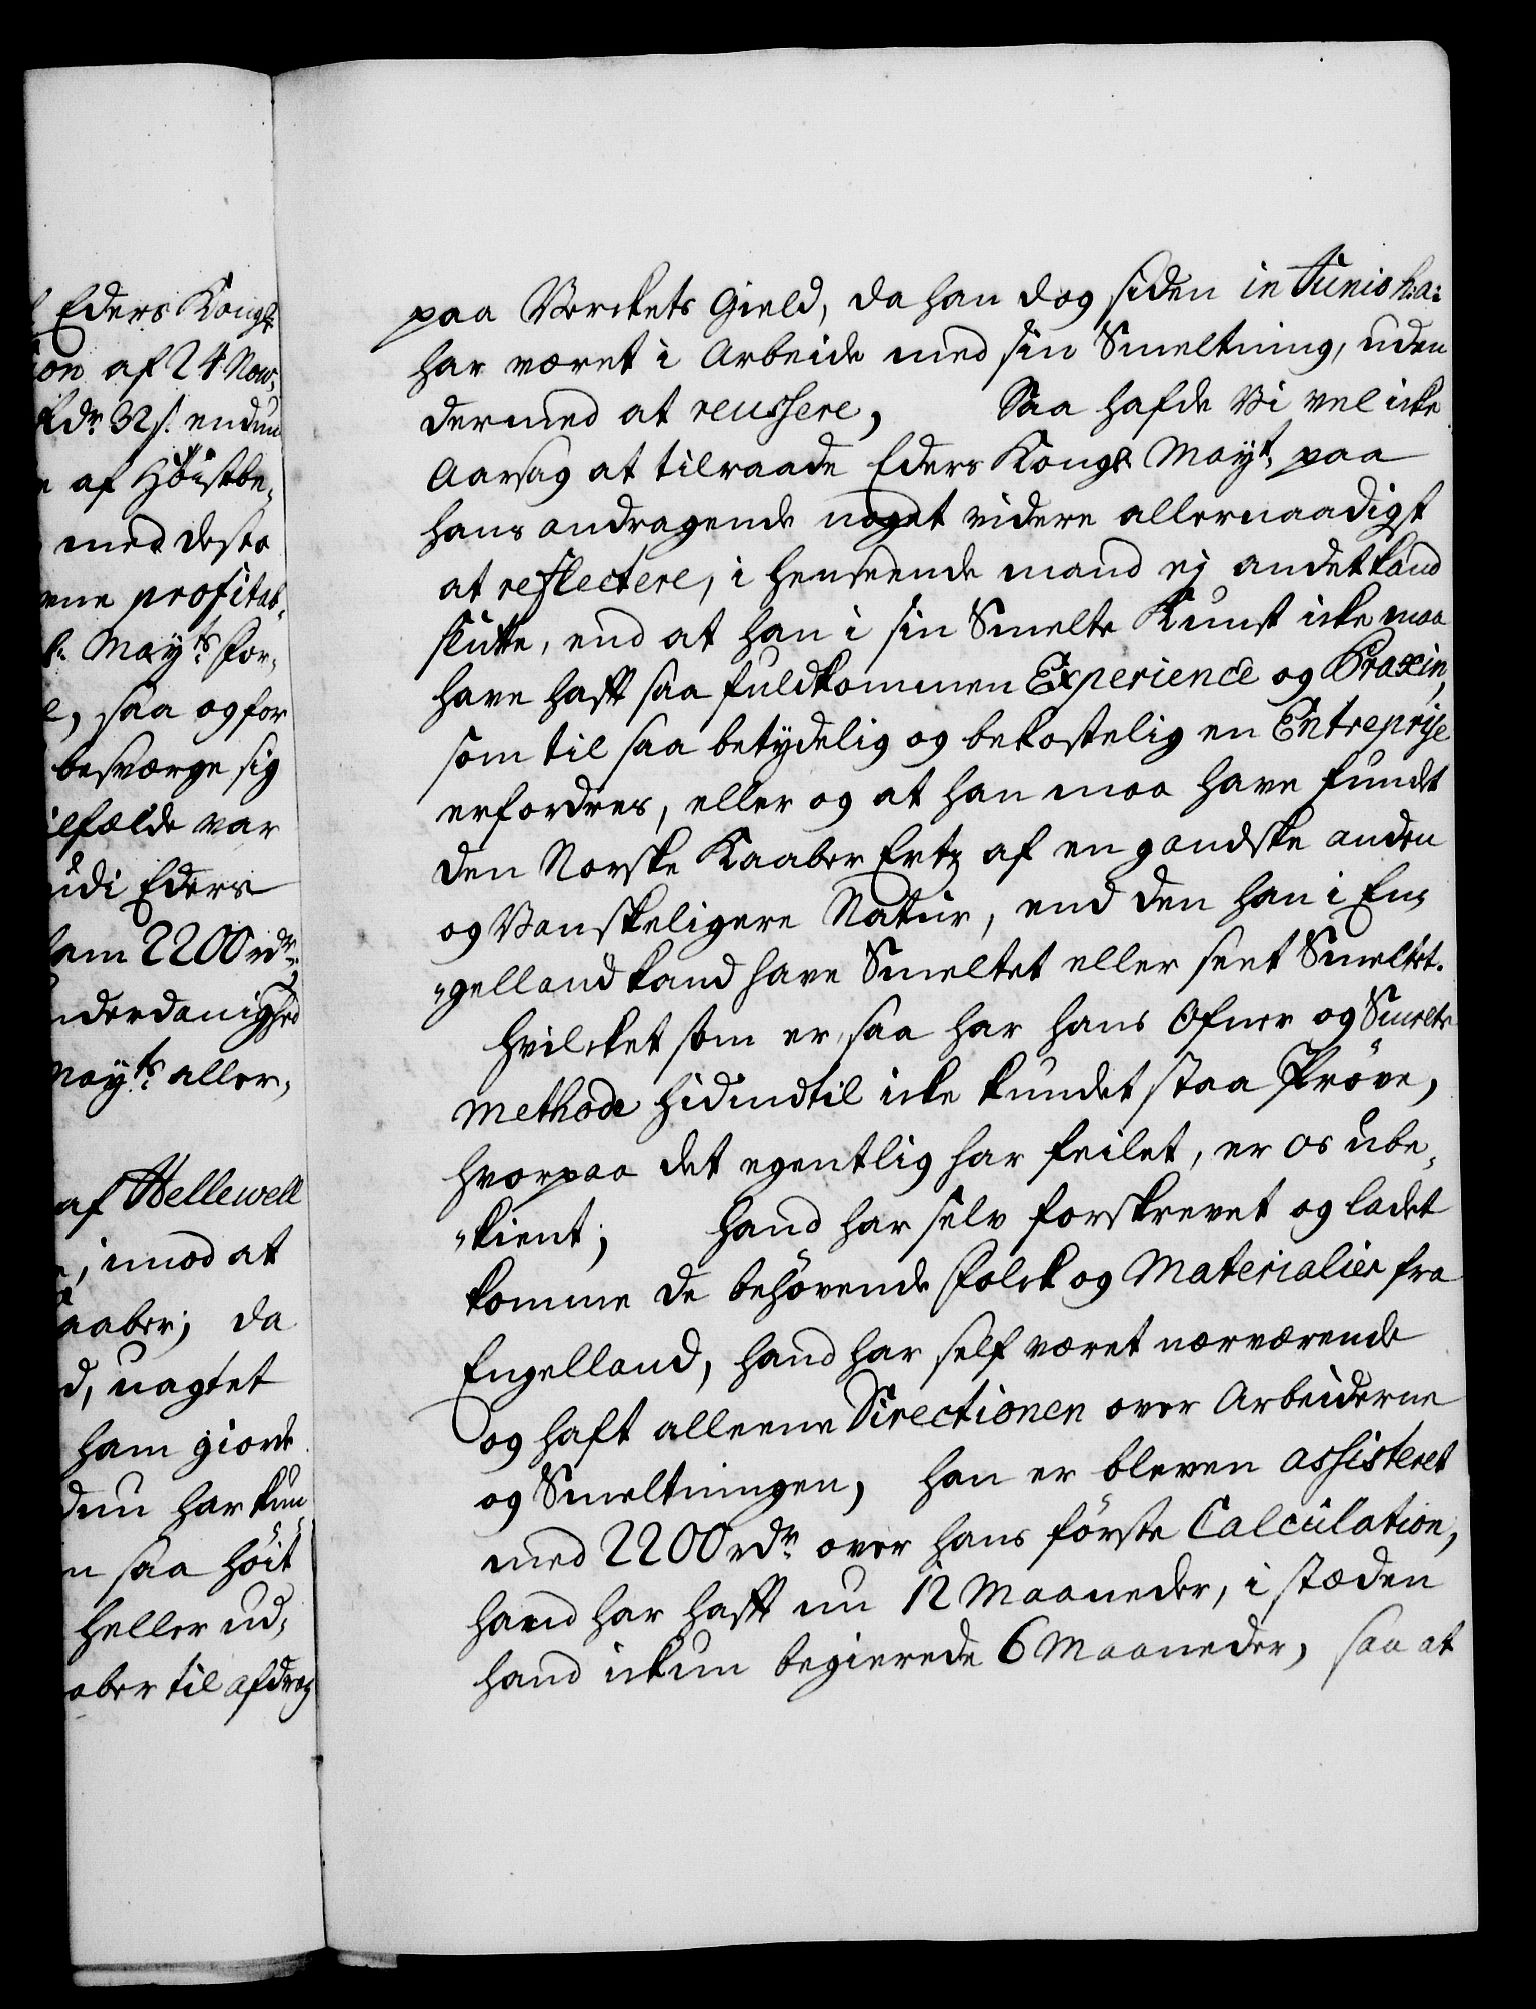 Eders Kongl.
ion af 24 Nov:
Rdr 32 s. endnu
af Höistbe,
med desto
profitab,
Mayts. for,
saa og for
besværge sig
ilfælde var
udi Eders
ham 2200 rdr.
nderdanighed
Mayts. aller,
af Hellewell
imod at
aaber; da
uagtet
ham giorde
har kun
saa höit
heller ud,
aber til afdrag
paa Verckets Gield, da han dog siden in Junio h: a:
har været i Arbeide med sin Smeltning, uden
dermed at reussere, Saa hafde Vi vel icke
Aarsag at tilraade Eders Kongl. Mayt. paa
hans andragende noget videre allernaadigst
at reflectere, i henseende mand ej andet kand
slutte, end at han i sin Smelte Kunst icke maa
have hafft saa fuldkommen Experience og Praxin,
som til saa betydelig og bekostelig en Entreprise
erfordres, eller og at han maa have fundet
den Norske Kaaber Ertz af en gandske anden
og Vanskeligere Natur, end den han i En,
"gelland kand have Smeltet eller seet Smeltet.
Hvilcket som er, saa har hans Ofner og Smelte
Methode hidindtil icke kundet staa Pröve,
hvorpaa det egentlig har feilet, er os ube,
"kient; Hand har selv forskrevet og ladet
komme de behövende Folck og Materialier fra
Engelland, hand har self været nærværende
og haft alleene Directionen over Arbeiderne
og Smeltningen, han er bleven assisteret
med 2200 rdr. over hans förste Calculation,
hand har hafft nu 12 Maaneder, i stæden
hand ickun begierede 6 Maaneder, saa at